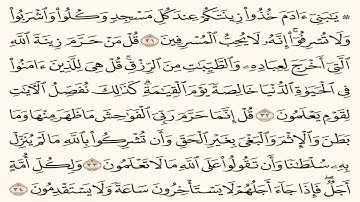 ۞ يَٰبَنِىٓ ءَادَمَ خُذُوا۟ زِينَتَكُمْ عِندَ كُلِّ مَسْجِدٍ وَكُلُوا۟ وَٱشْرَبُوا۟
وَلَا تُسْرِفُوٓا۟ إِنَّهُۥ لَا يُحِبُّ ٱلْمُسْرِفِينَ ٣١ قُلْ مَنْ حَرَّمَ زِينَةَ ٱللَّهِ
ٱلَّتِىٓ أَخْرَجَ لِعِبَادِهِۦ وَٱلطَّيِّبَٰتِ مِنَ ٱلرِّزْقِ قُلْ هِىَ لِلَّذِينَ ءَامَنُوا۟
فِى ٱلْحَيَوٰةِ ٱلدُّنْيَا خَالِصَةً يَوْمَ ٱلْقِيَٰمَةِ كَذَٰلِكَ نُفَصِّلُ ٱلْءَايَٰتِ
لِقَوْمٍ يَعْلَمُونَ ٣٢ قُلْ إِنَّمَا حَرَّمَ رَبِّىَ ٱلْفَوَٰحِشَ مَا ظَهَرَ مِنْهَا وَمَا
بَطَنَ وَٱلْإِثْمَ وَٱلْبَغْىَ بِغَيْرِ ٱلْحَقِّ وَأَن تُشْرِكُوا۟ بِٱللَّهِ مَا لَمْ يُنَزِّلْ
بِهِۦ سُلْطَٰنًا وَأَن تَقُولُوا۟ عَلَى ٱللَّهِ مَا لَا تَعْلَمُونَ ٣٣ وَلِكُلِّ أُمَّةٍ
أَجَلٌ فَإِذَا جَآءَ أَجَلُهُمْ لَا يَسْتَأْخِرُونَ سَاعَةً وَلَا يَسْتَقْدِمُونَ ٣٤